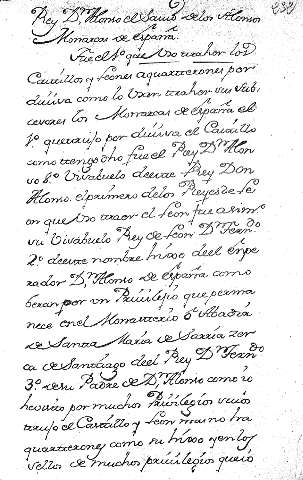 232
Rey D.n Alonso el Savio de los Alonsos
Monarcas de España.
Fue el 1.º que vso traher los
Castillos y Leones a quarterones por
diuisa como lo vsan sus sub
cesores los Monarcas de España el
1.º que trujo por diuisa el Castillo
como tengo dho fue el Rey D.n Alon
so 8.º Visabuelo de este Rey Don
Alonso. el primero de los Reyes de Le
on que vso traer el Leon fue
su Visabuelo Rey de Leon D.n Fern.do
2.º de este nombre hijo del Enpe
rador D.n Alonso de España como
beran por un Priuilegio que perma
nece en el Monasterio o Abadia
de Santa Maria de Sarria zer
ca de Santiago del Rey D.n Fern.do
3.º de su Padre de D.n Alonso como io
he visto por muchos Priuilegios suios
trujo el Castillo y Leon mas no ha
quarterones como su hijo y en los
sellos de muchos priuilegios que io